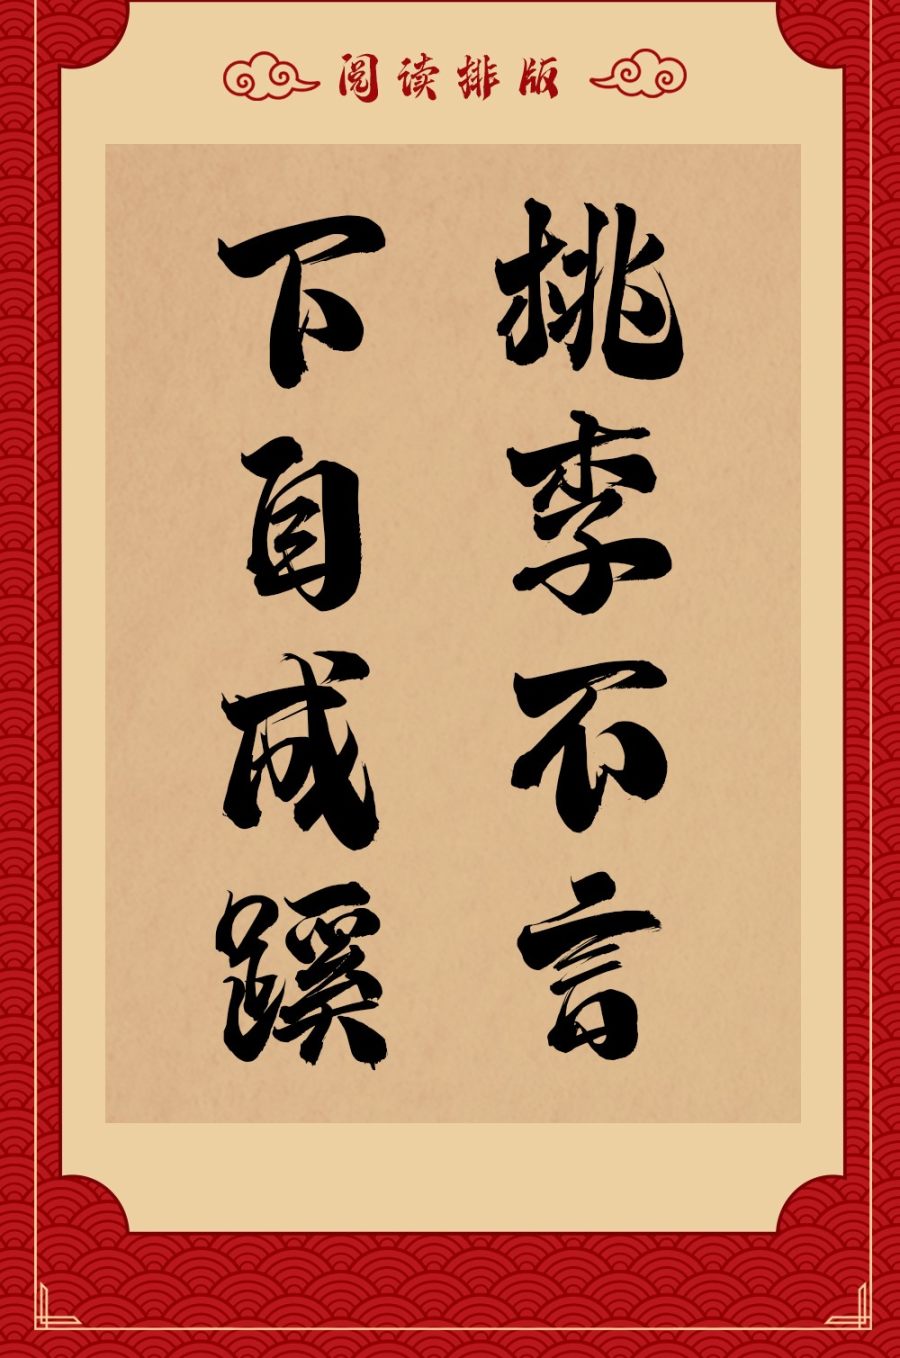 阅读排版
挑李不言
下自成蹊